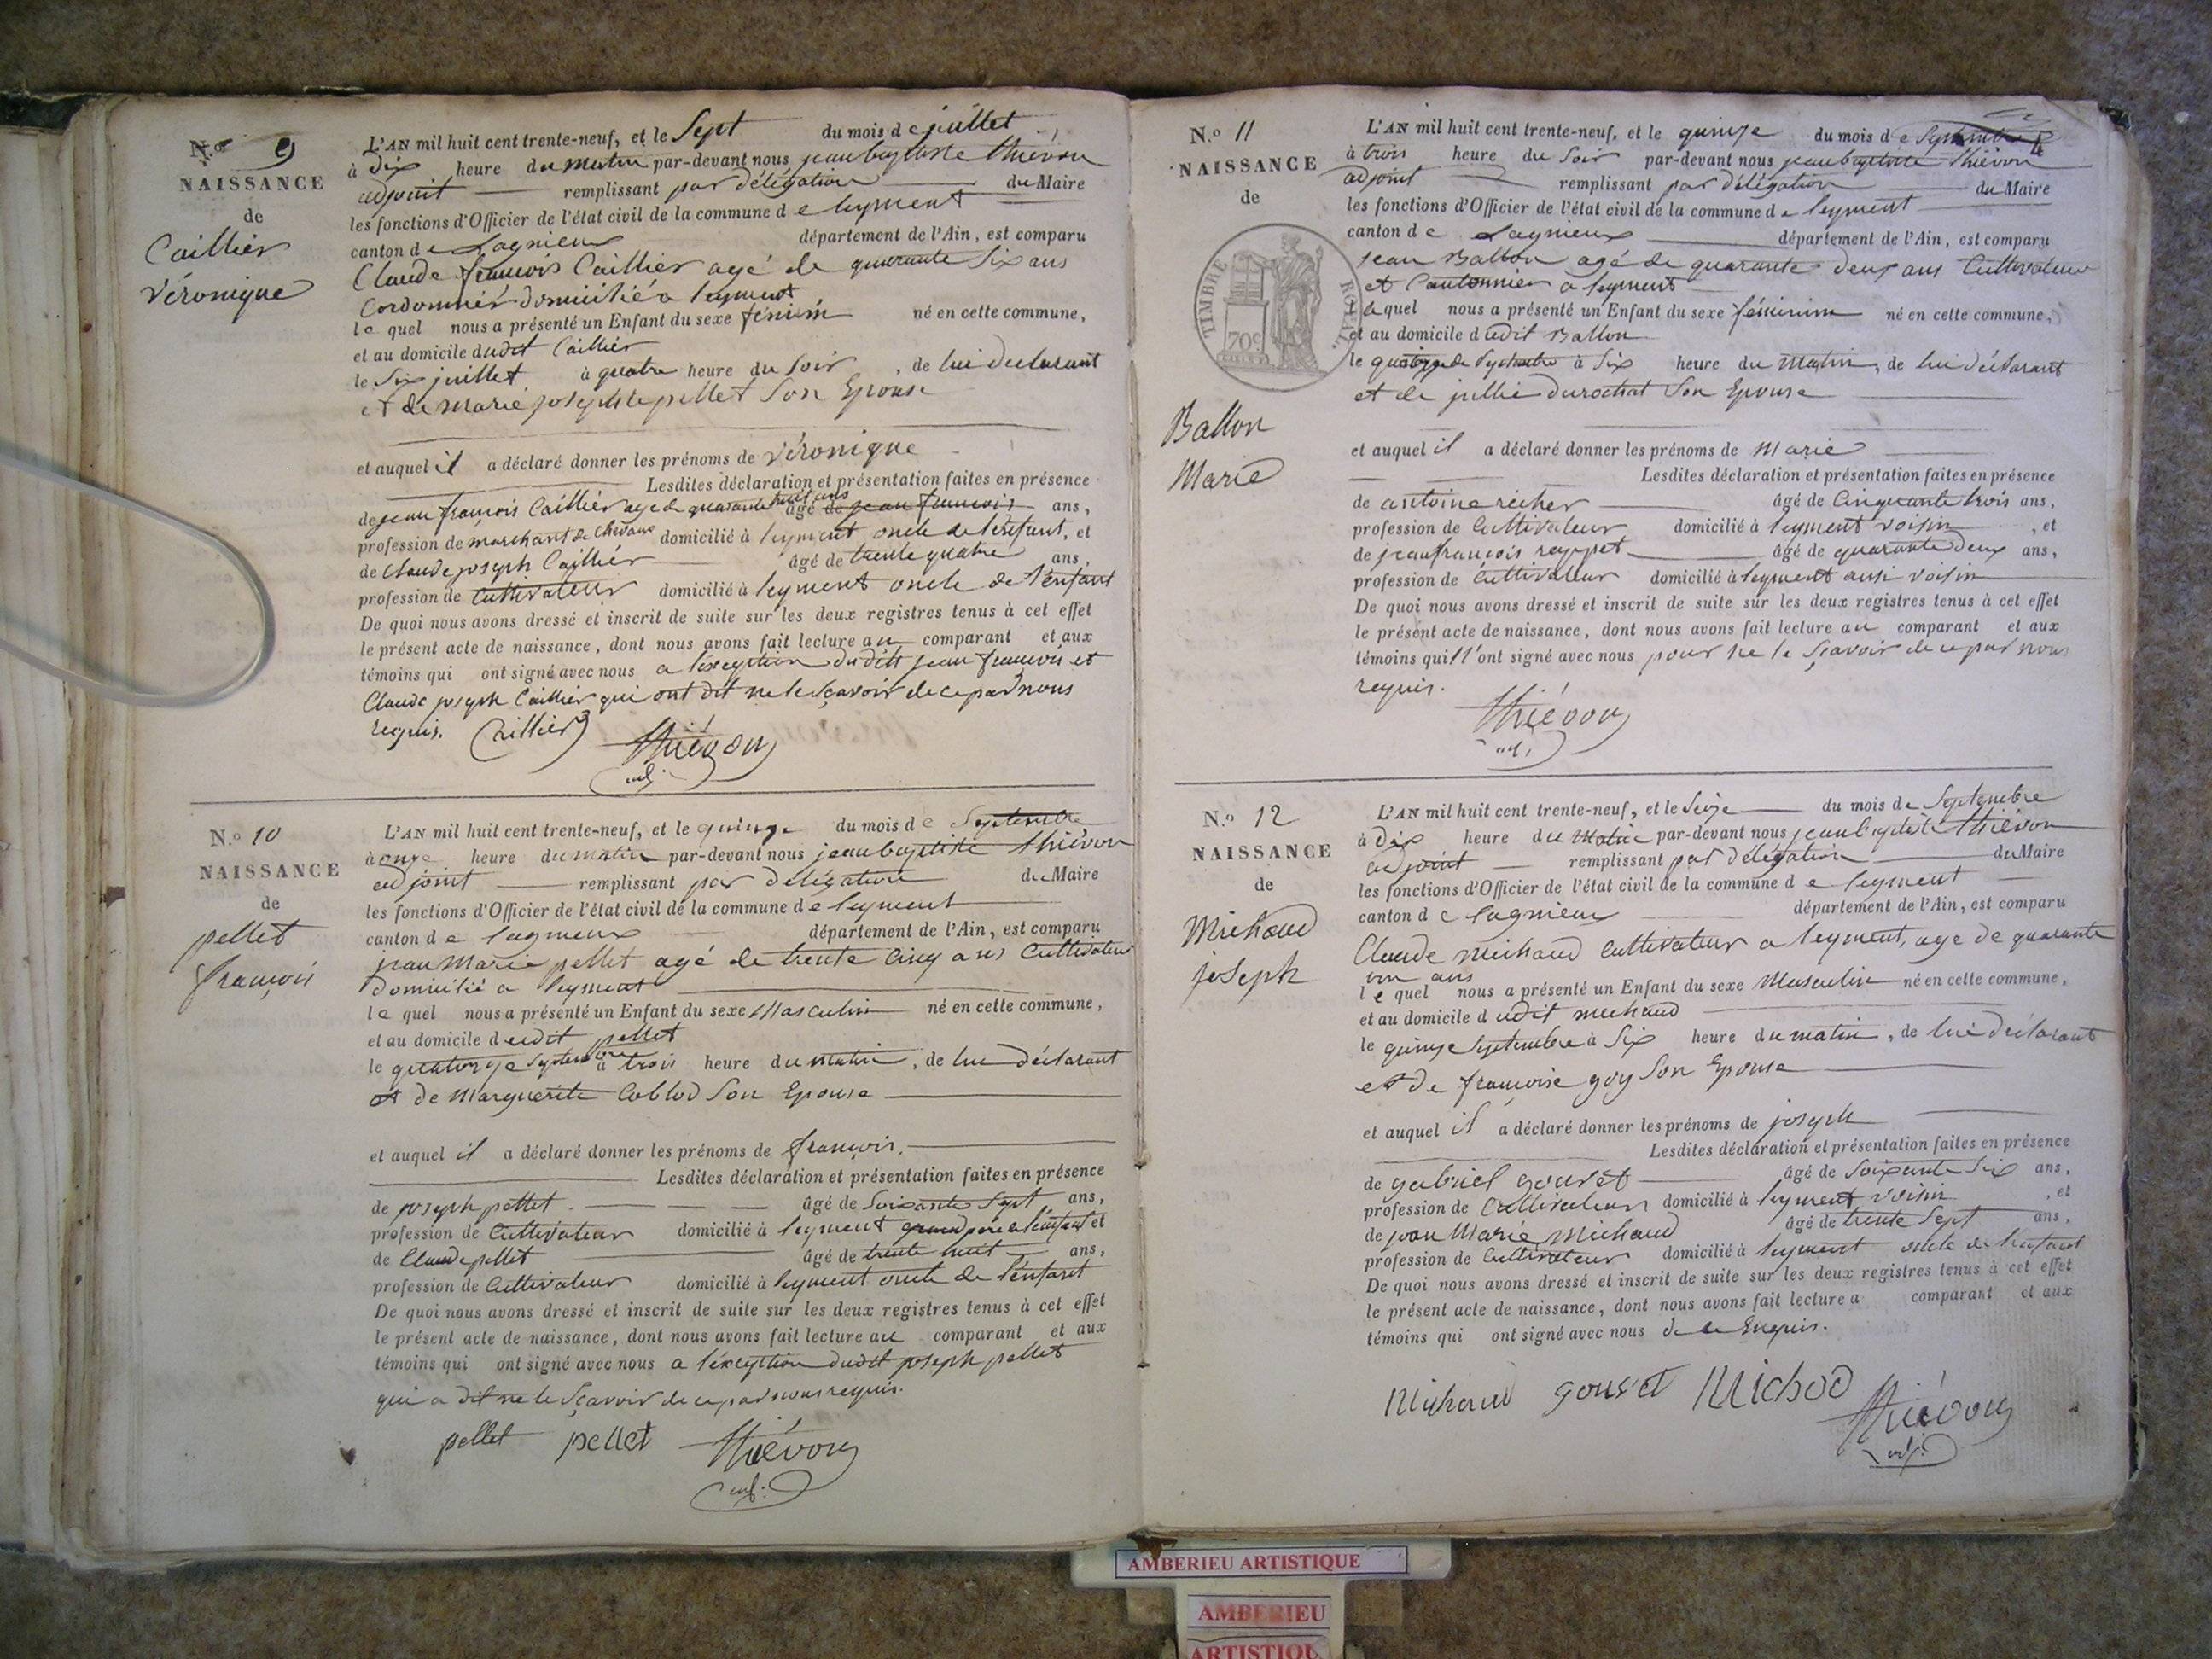 N.o 9
NAISSANCE
de
Caillier
Véronique
L'AN mil huit cent trente-neuf, et le Sept du mois de juillet
à Dix heure du matin par-devant nous jean baptiste thiévon
adjoint remplissant par délégation du Maire
les fonctions d'Officier de l'état civil de la commune de leyment
canton de Lagnieux département de l'Ain, est comparu
Claude françois Caillier agé de quarante Six ans
Cordonnier domicilié a leyment
le quel nous a présenté un Enfant du sexe féninin né en cette commune,
et au domicile dudit Caillier
le Six juillet à quatre heure du Soir, de lui déclarant
et de Marie josephte pellet Son Epouse
et auquel il a déclaré donner les prénoms de Véronique
Lesdites déclaration et présentation faites en présence
de jean françois Caillier age de quarante huit ans âgé de jean francois ans,
profession de marchant de Chevaux domicilié à leyment oncle de l'enfant, et
de Claude joseph Caillier âgé de trente quatre ans,
profession de Cultivateur domicilié à leyment oncle de l'enfant
De quoi nous avons dressé et inscrit de suite sur les deux registres tenus à cet effet
le présent acte de naissance, dont nous avons fait lecture au comparant et aux
témoins qui ont signé avec nous a l'exception dudits jean françois et
Claude joseph Caillier qui ont dit ne le Sçavoir de ce par nous
requis. Caillier thiévon
adj.
N.o 10
NAISSANCE
de
pellet
françois
L'AN mil huit cent trente-neuf, et le quinze du mois de Septembre
à onze heure du matin par-devant nous jean baptiste thiévon
adjoint remplissant par délégation du Maire
les fonctions d'Officier de l'état civil de la commune de leyment
canton de lagnieux département de l'Ain, est comparu
jean Marie pellet agé de trente Cinq ans Cultivateur
domicilié a leyment
le quel nous a présenté un Enfant du sexe Masculin né en cette commune,
et au domicile dudit pellet
le quatorze Septembre à trois heure du matin, de lui déclarant
et de Marguerite Coblod Son Epouse
et auquel il a déclaré donner les prénoms de françois.
Lesdites déclaration et présentation faites en présence
de joseph pellet âgé de Soixante Sept ans,
profession de Cultivateur domicilié à leyment grand père a l'enfant et
de Claude pellet âgé de trente huit ans,
profession de Cultivateur domicilié à leyment oncle de l'enfant
De quoi nous avons dressé et inscrit de suite sur les deux registres tenus à cet effet
le présent acte de naissance, dont nous avons fait lecture au comparant et aux
témoins qui ont signé avec nous a l'exception dudit joseph pellet
qui a dit ne le Sçavoir de ce par nous requis.
pellet pellet thiévon
adj.
N.o 11
NAISSANCE
de
TIMBRE ROYAL
70c
Ballon
Marie
L'AN mil huit cent trente-neuf, et le quinze du mois de Septembre
à trois heure du Soir par-devant nous jean baptiste thiévon
adjoint remplissant par délégation du Maire
les fonctions d'Officier de l'état civil de la commune de leyment
canton de Lagnieux département de l'Ain, est comparu
jean Ballon agé de quarante deux ans Cultivateur
et Cantonnier a leyment
le quel nous a présenté un Enfant du sexe féminin né en cette commune,
et au domicile dudit Ballon
le quatorze de Septembre à Six heure du Matin, de lui déclarant
et de jullie durochat Son Epouse
et auquel il a déclaré donner les prénoms de Marie
Lesdites déclaration et présentation faites en présence
de antoine richer âgé de Cinquante trois ans,
profession de Cultivateur domicilié à leyment voisin, et
de jean françois reyppet âgé de quarante deux ans,
profession de Cultivateur domicilié à leyment ausi voisin
De quoi nous avons dressé et inscrit de suite sur les deux registres tenus à cet effet
le présent acte de naissance, dont nous avons fait lecture au comparant et aux
témoins qui n'ont signé avec nous pour ne le Sçavoir de ce par nous
requis.
thiévon
adj.
N.o 12
NAISSANCE
de
Michaud
joseph
L'AN mil huit cent trente-neuf, et le Seize du mois de Septembre
à Dix heure du Matin par-devant nous jean baptiste thiévon
adjoint remplissant par délégation du Maire
les fonctions d'Officier de l'état civil de la commune de leyment
canton de lagnieux département de l'Ain, est comparu
Claude michaud Cultivateur a leyment, age de quarante
ans
le quel nous a présenté un Enfant du sexe Masculin né en cette commune,
et au domicile dudit michaud
le quinze Septembre à Six heure du matin, de lui déclarant
et de françoise goy Son Epouse
et auquel il a déclaré donner les prénoms de joseph
Lesdites déclaration et présentation faites en présence
de gabriel gouset âgé de Soixante Six ans,
profession de Cultivateur domicilié à leyment voisin, et
de jean Marie Michaud âgé de trente Sept ans,
profession de Cultivateur domicilié à leyment oncle de l'enfant
De quoi nous avons dressé et inscrit de suite sur les deux registres tenus à cet effet
le présent acte de naissance, dont nous avons fait lecture a comparant et aux
témoins qui ont signé avec nous de ce Enquis.
Michaud gouset Michod thiévon
adj.
AMBERIEU ARTISTIQUE
AMBERIEU
ARTISTIQU